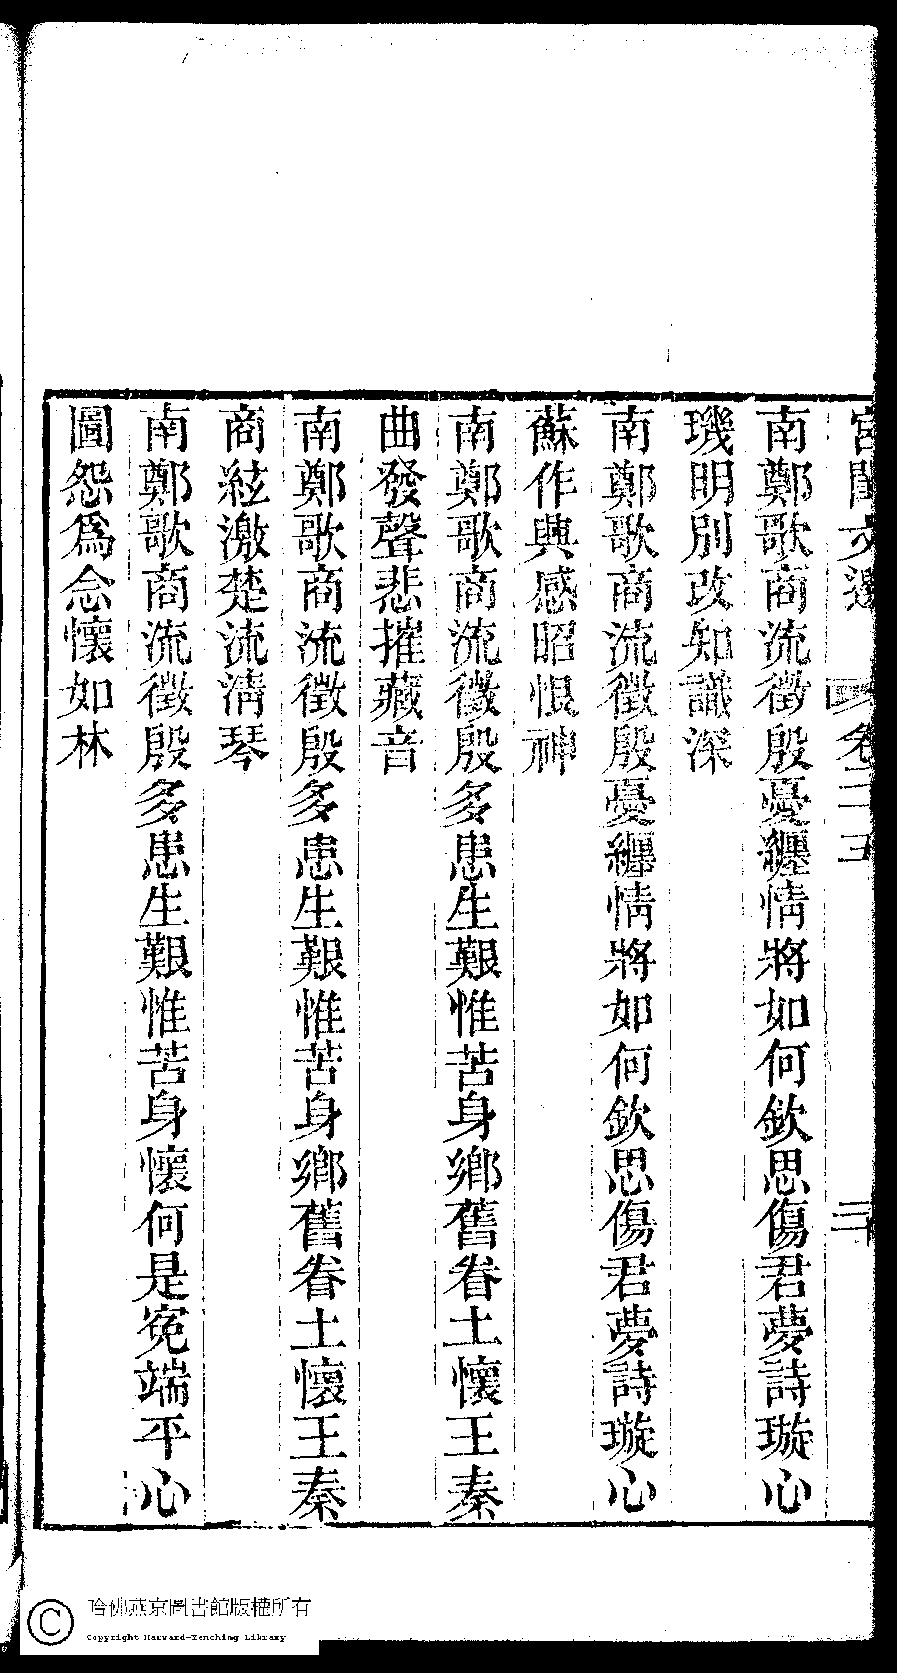 宮閨文選 卷二十五 三十
南鄭歌商流徵殷憂纏情將如何欽思傷君夢詩璇心
璣明別改知識深
南鄭歌商流徵殷憂纏情將如何欽思傷君夢詩璇心
蘇作興感昭恨神
南鄭歌商流徵殷多患生艱惟苦身鄉舊眷土懷王秦
曲發聲悲摧藏音
南鄭歌商流徵殷多患生艱惟苦身鄉舊眷土懷王秦
商絃激楚流清琴
南鄭歌商流徵殷多患生艱惟苦身懷何是冤端平心
圖怨為念懷如林
哈佛燕京圖書館版權所有
Copyright Harvard-Yenching Library